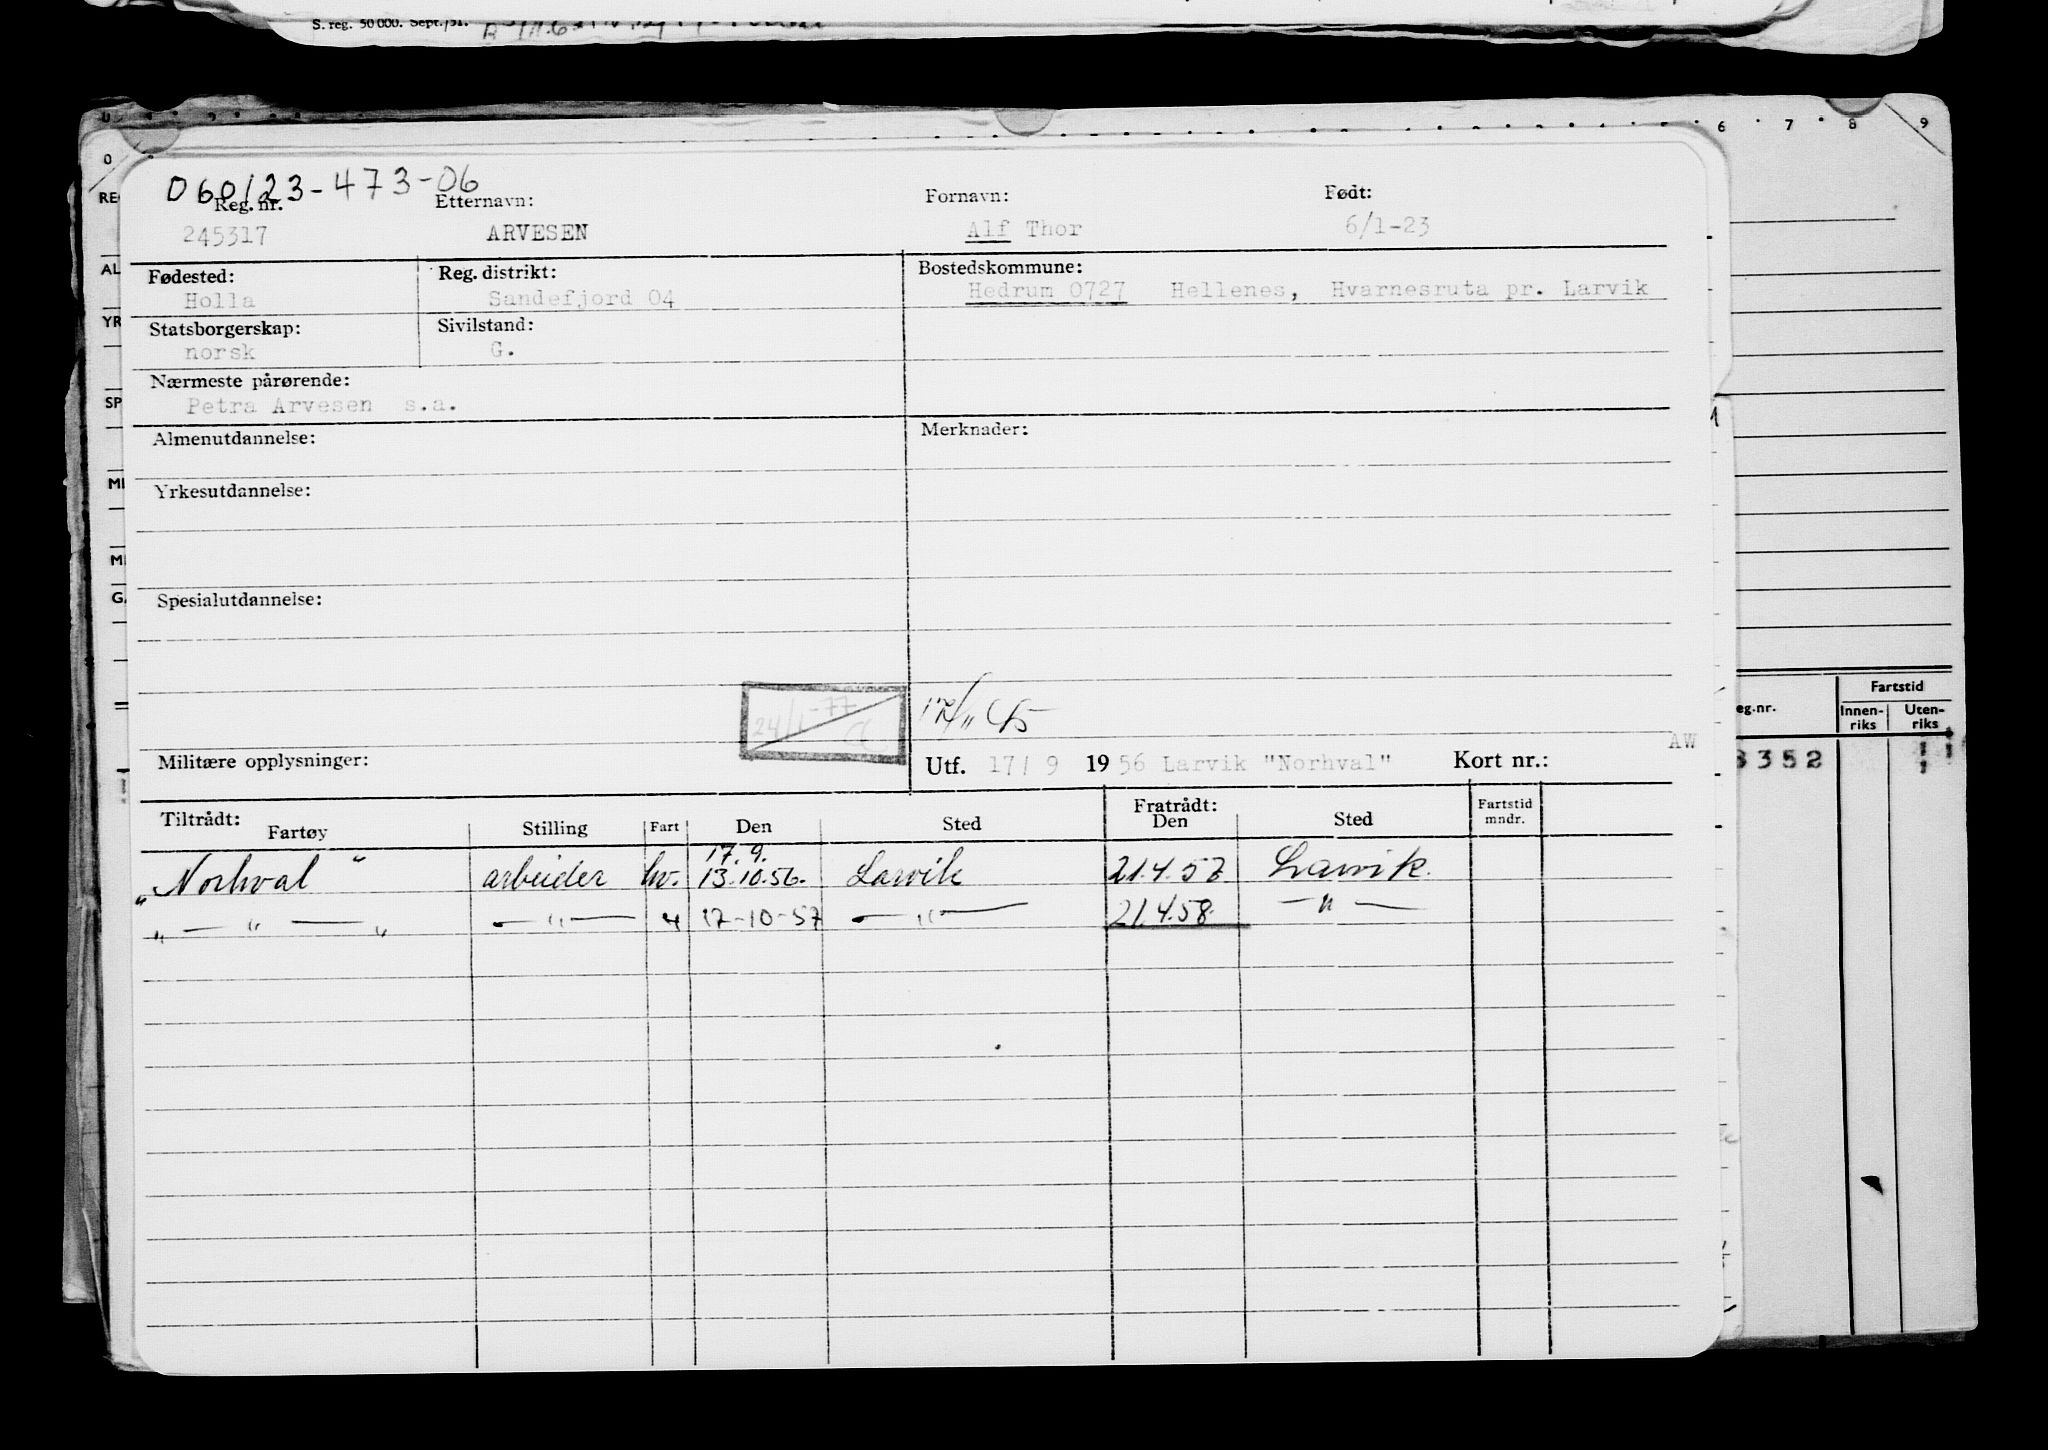 S. reg. 50 000. Sept./51.
6 7 8 9
0
060123-473-06
Reg. nr. Etternavn: Fornavn: Født:
245317 ARVESEN Alf Thor 6/1-23
Fødested: Reg. distrikt: Bostedskommune:
Holla Sandefjord 04 Hedrum 0727 Hellenes, Hvarnesruta pr. Larvik
Statsborgerskap: Sivilstand:
norsk G.
Nærmeste pårørende:
Petra Arvesen s.a.
Almenutdannelse: Merknader:
Yrkesutdannelse:
Spesialutdannelse:
24/1-77
Militære opplysninger: Utf. 17/9 1956 Larvik "Norhval" Kort nr.:
AW
Tiltrådt: Fratrådt: Fartstid
Fartøy Stilling Fart Den Sted Den Sted mndr.
17.9.
"Norhval" arbeider hv. 13.10.56. Larvik 21.4.57 Larvik.
„ — " — „ — " — 4 17-10-57 — " — 21.4.58. — " —
Fartstid
eg.nr. Innen-riks Uten-riks
3352